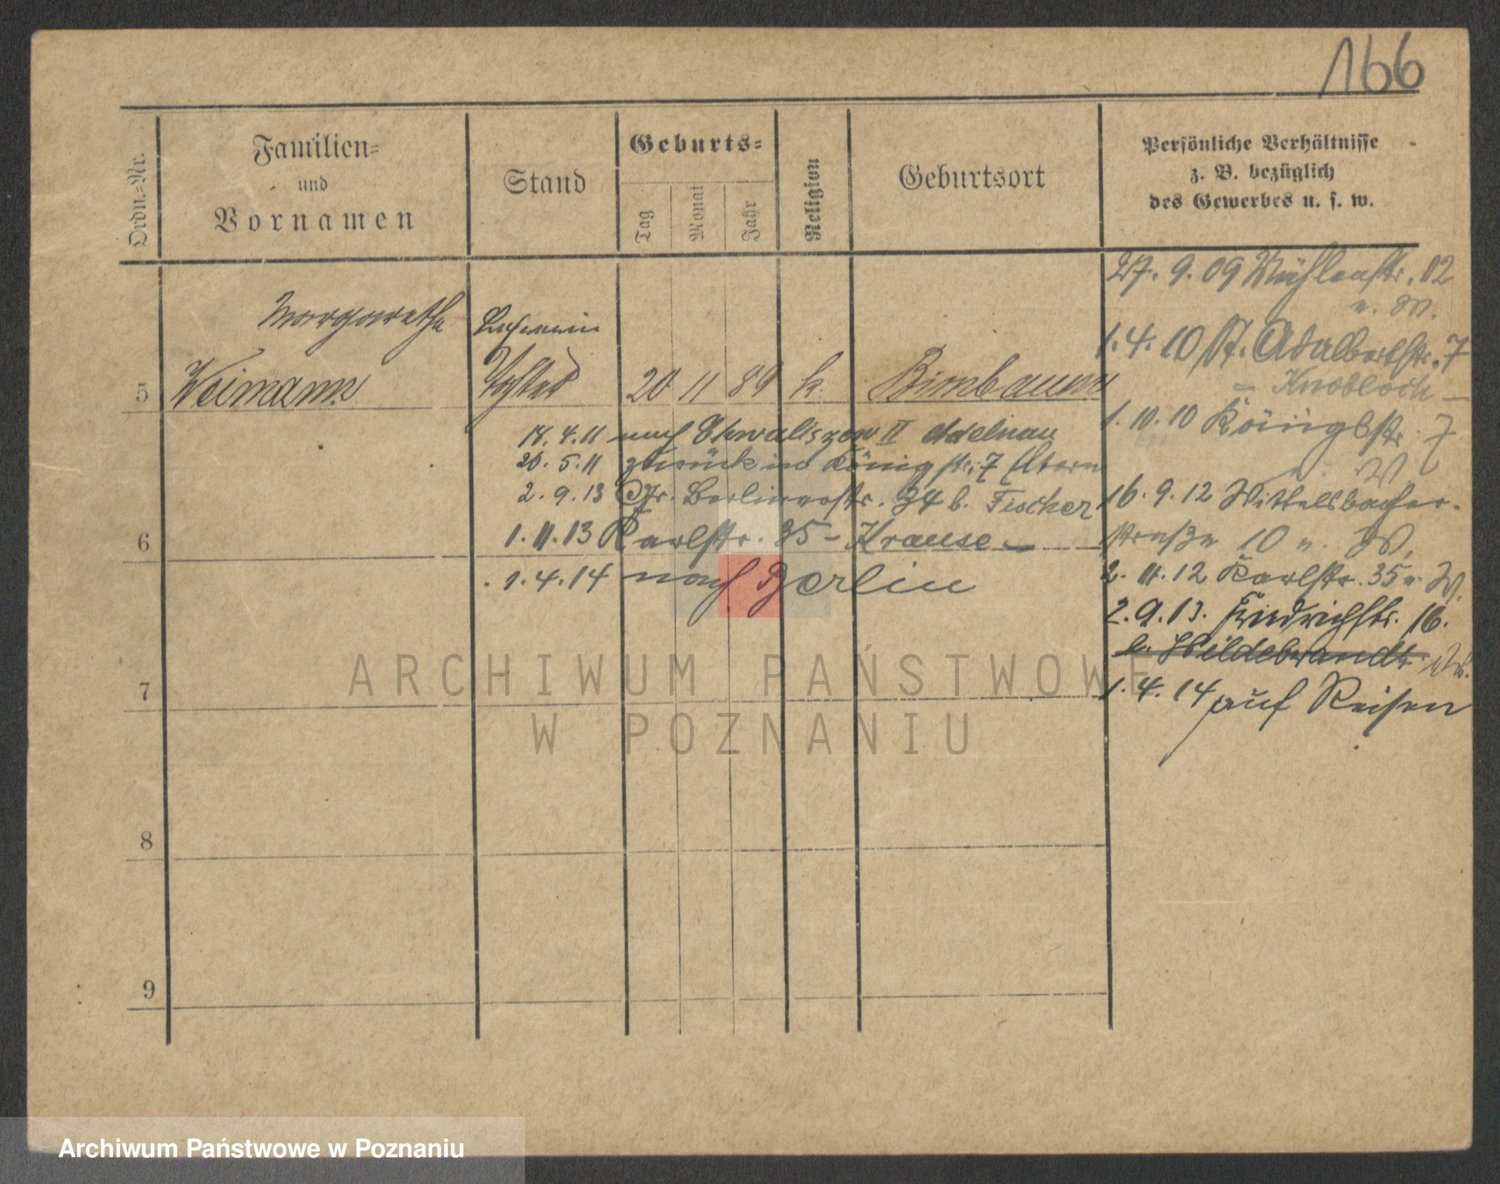 166
Ordn.-Nr.
Familien-
und
Vornamen
Stand
Geburts-
Tag
Monat
Jahr
Religion
Geburtsort
Persönliche Verhältnisse
z. B. bezüglich
des Gewerbes u. s. w.
Margarethe
Lehrerin
5 Weimann 20 11 89 k. Birnbaum
18.4.11 nach II Adelnau
20.5.11 zurück in Königstr. 7 Eltern
2.9.13 Gr. Berlinerstr. 34 b. Fischer
6 1.11.13 Karlstr. 35 – Krause –
1.4.14 nach Berlin
7
8
9
27.9.09 Mühlenstr. 12
u. W.
1.4.10 St. Adalbertstr. 7
– Knobloch –
1.10.10 Königstr. 7
W
16.9.12 Wittelsbacher-
straße 10 u. W.
2.11.12 Karlstr. 35 u. W.
2.9.13. Friedrichstr. 16.
b. Hildebrandt
1.4.14 auf Reisen
ARCHIWUM PAŃSTWOWE
W POZNANIU
Archiwum Państwowe w Poznaniu